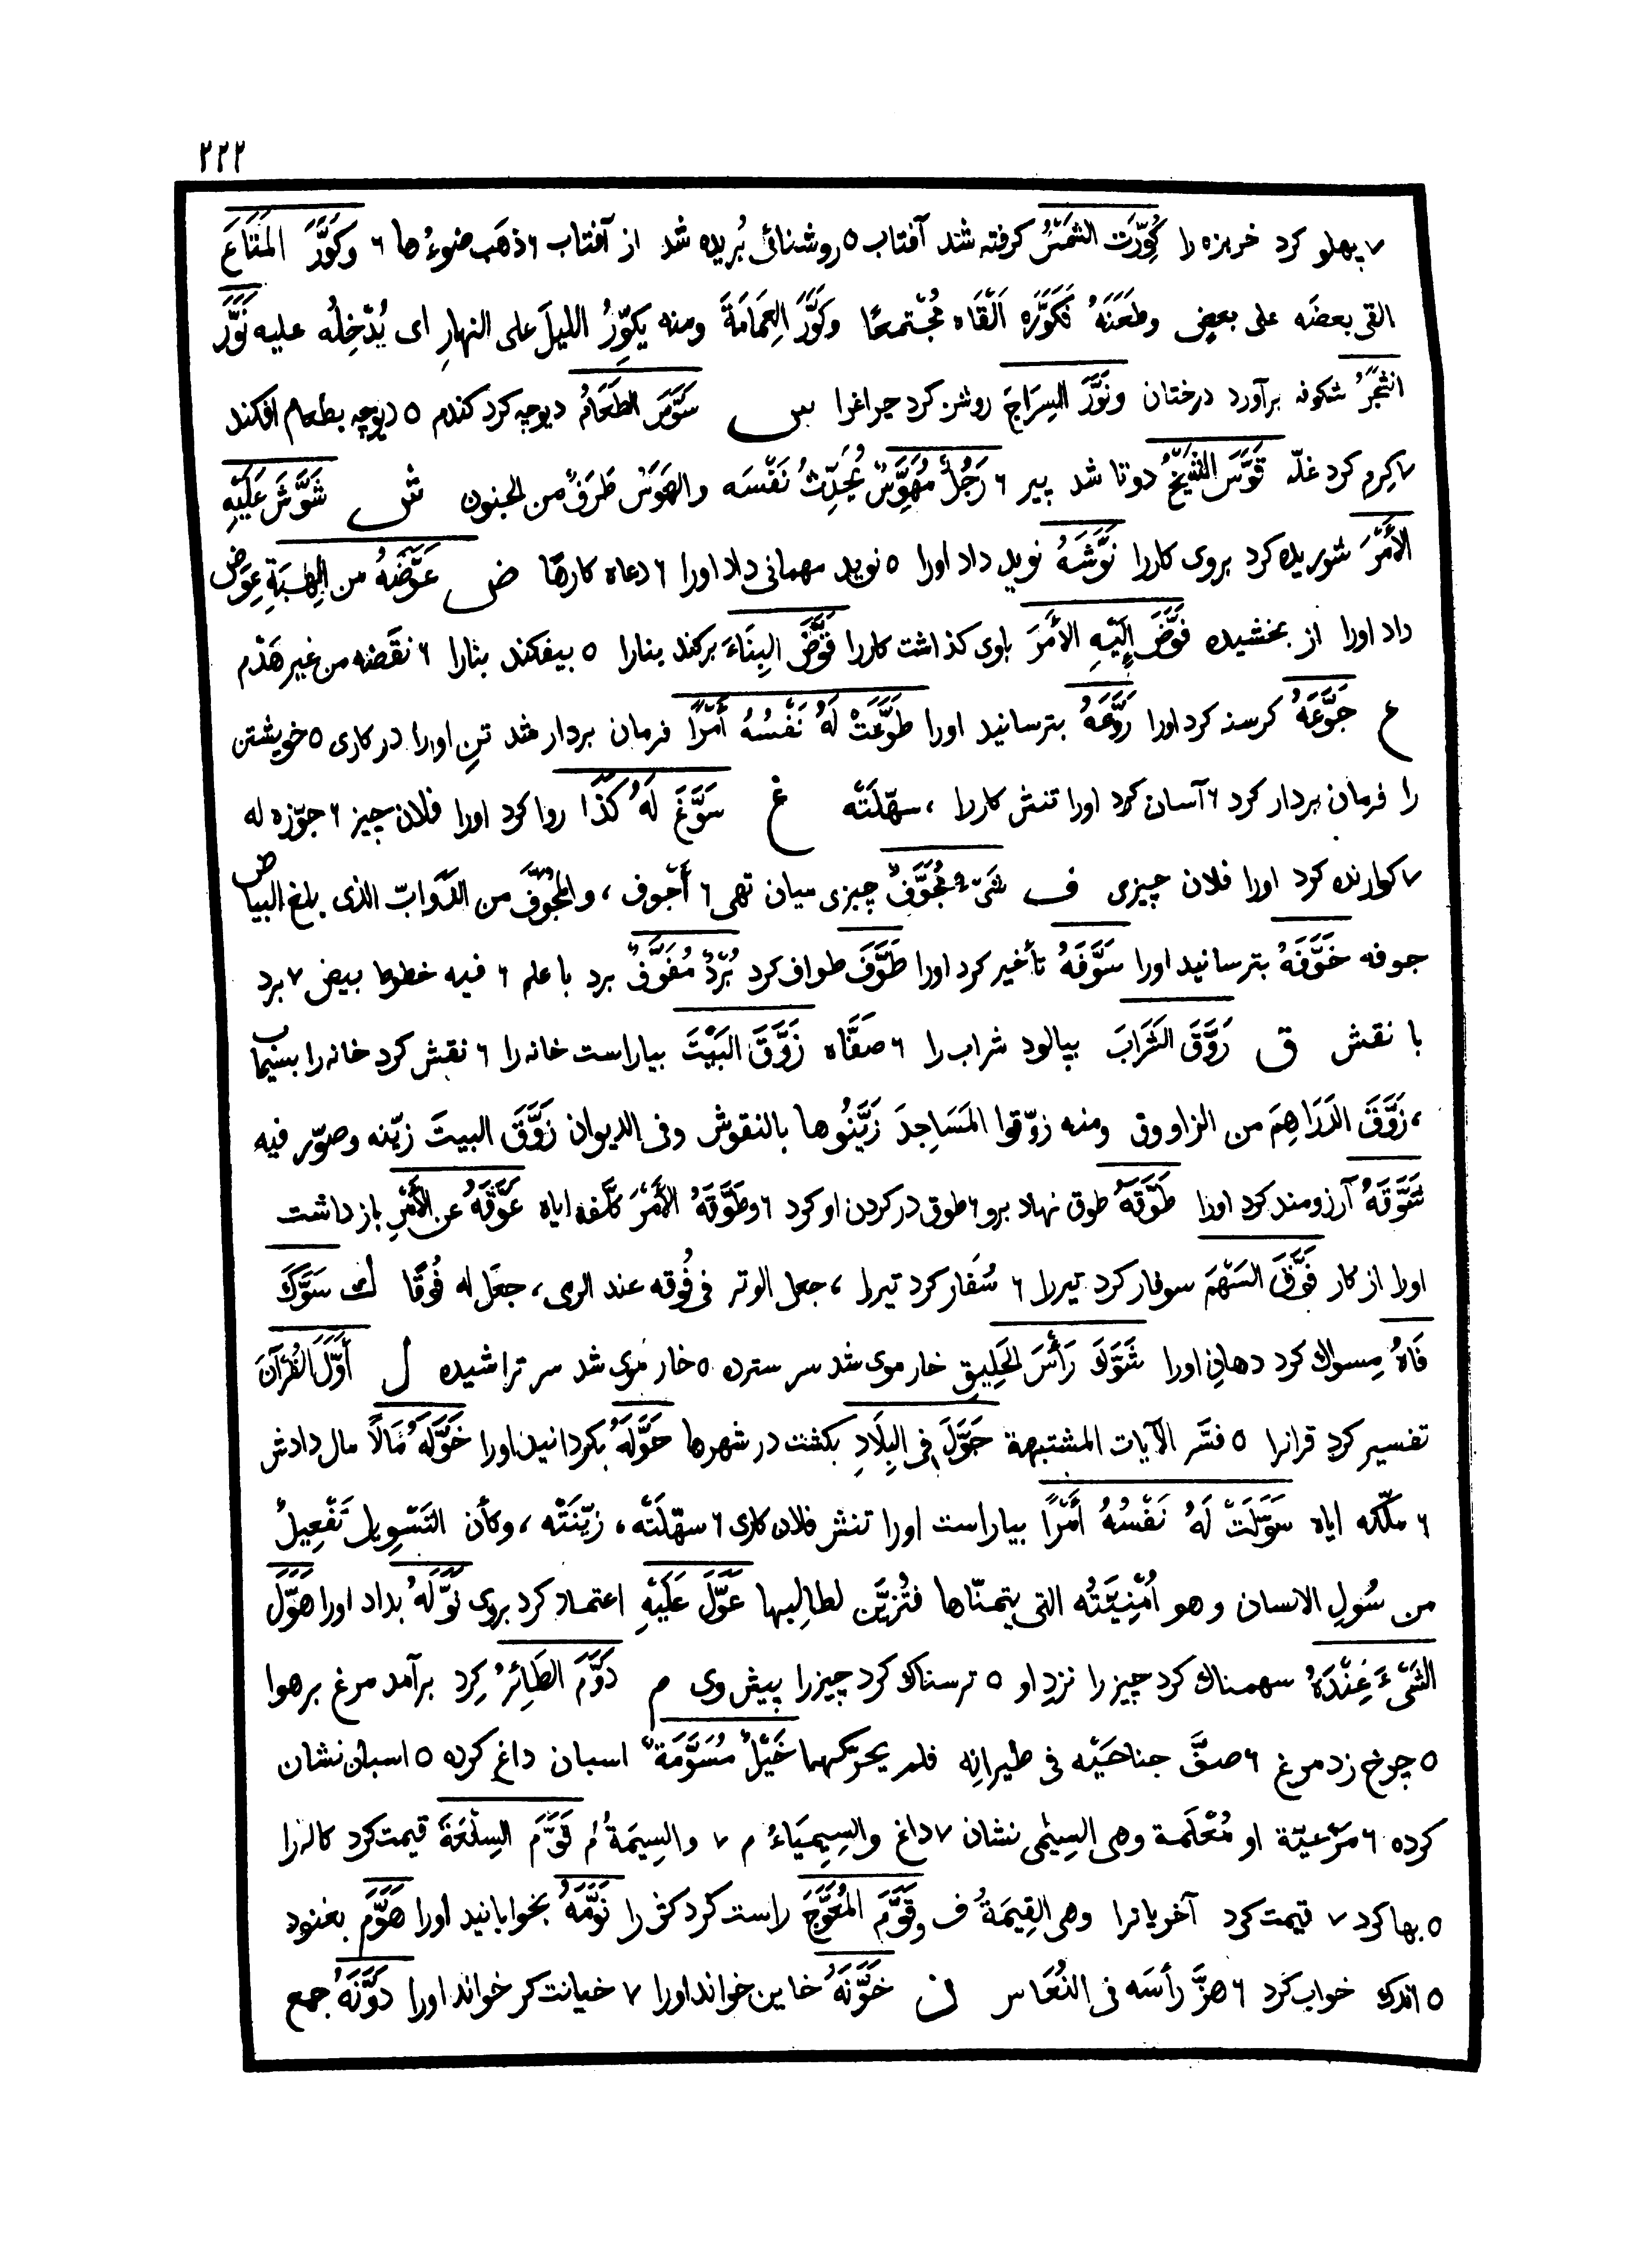 ٢٢٢
٧ پهلو کرد خربزه را كُوِّرَت الشَمْسُ کرفته شد آفتاب ٥ روشنائی بُریده شد از آفتاب ٦ ذهَب ضوءُها ٦ وكَوَّرَ المَتَاعَ
القى بعضَه على بعضٍ وطَعَنَهُ فَكَوَّرَه اَلْقَاه مُجْتمعًا وكَوَّرَ العِمَامَةَ ومنه يكوِّرُ الليلَ على النهارِ اى يُدْخِلُه عليه نَوَّرَ
الشجَرُ شکوفه برآورد درختان ونَوَّرَ السِرَاجَ روشن کرد چراغرا س سَوَّسَ الطَعَامُ دیوچه کرد کندم ٥ دیوچه بطعام افکند
٧ کِرم کرد غلّه قَوَّسَ الشَيْخُ دوتا شد پیر ٦ رَجُلٌ مُهَوَّسٌ يُحَدِّثُ نَفْسَه والهَوَسُ طَرَفٌ من الجنون ش شَوَّشَ عَلَيْهِ
الأَمْرَ شوریده کرد بروی کاررا نَوَّشَهُ نوید داد اورا ٥ نوید مهمانی داد اورا ٦ دعاه كارهًا ض عَوَّضَهُ من الهِبَةِ عِوَض
داد اورا از بخشیده فَوَّضَ إِلَيْهِ الأَمْرَ باوی کذاشت کاررا قَوَّضَ البِنَاءَ برکند بنارا ٥ بیفکند بنارا ٦ نقَضه من غير هَدْم
ع جَوَّعَهُ کرسنه کرد اورا رَوَّعَهُ بترسانید اورا طَوَّعَتْ لَهُ نَفْسُهُ أَمْرًا فرمان بردار شد تنِ اورا در کاری ٥ خویشتن
را فرمان بردار کرد ٦ آسان کرد اورا تنش کاررا ، سهّلَتْه غ سَوَّغَ لَهُ كَذَا روا کرد اورا فلان چیز ٦ جوّزه له
٧ کوارنده کرد اورا فلان چیزی ف شَىْءٌ مُجَوَّفٌ چیزی میان تهی ٦ أَجْوف ، والمُجَوَّفُ من الدَوابّ الذى بلغ البياض
جوفه خَوَّفَهُ بترسانید اورا سَوَّفَهُ تأخیر کرد اورا طَوَّفَ طواف کرد بُرْدٌ مُفَوَّفٌ برد با علم ٦ فيه خطوط بيض ٧ برد
با نقش ق رَوَّقَ الشَرَابَ بپالود شراب را ٦ صفَّاه زَوَّقَ البَيْتَ بیاراست خانه را ٦ نقش کرد خانه را بسیماب
، زَوَّقَ الدَرَاهِمَ من الزاووق ومنه زوّقوا المَسَاجِدَ زَيَّنُوها بالنقوش وفى الديوان زوَّقَ البيتَ زيّنه وصوّر فيه
شَوَّقَهُ آرزومند کرد اورا طَوَّقَهُ طوق نهاد برو ٦ طوق در کردن او کرد ٦ وطَوَّقَهُ الأَمْرَ كلَّفه اياه عَوَّقَهُ عن الأَمْرِ باز داشت
اورا از کار فَوَّقَ السَهْمَ سوفار کرد تیررا ٦ سُفار کرد تیررا ، جعل الوتر فى فُوقه عند الرمى ، جعَل له فُوقًا ك سَوَّكَ
فَاهُ مِسواك کرد دهانِ اورا شَوَّكَ رَأْسَ الحَلِيقِ خار موی شد سر سترده ٥ خار موی شد سر تراشیده ل أَوَّلَ القُرْآنَ
تفسیر کرد قرانرا ٥ فسَّر الآيات المشتبهة جَوَّلَ فى البِلَادِ بکشت در شهرها حَوَّلَهُ بکردانید اورا خَوَّلَهُ مَالًا مال دادش
٦ ملّكه اياه سَوَّلَتْ لَهُ نَفْسُهُ أَمْرًا بیاراست اورا تنش فلان کاری ٦ سهّلَتْه ، زيّنَتْه ، وكأن التَسْوِيل تَفْعِيلٌ
من سُولِ الانسان وهو أُمْنِيَّتُه التى يتمنّاها فتُزيَّن لطالِبها عَوَّلَ عَلَيْهِ اعتماد کرد بروی نَوَّلَهُ بداد اورا هَوَّلَ
الشَىْءَ عِنْدَهُ سهمناك کرد چیز را نزدِ او ٥ ترسناك کرد چیزرا پیش وی م دَوَّمَ الطَائِرُ کِرد برآمد مرغ بر هوا
٥ چرخ زد مرغ ٦ صفَّ جناحَيْه فى طيرانِه فلم يحرّكهما خَيْلٌ مُسَوَّمَةٌ اسبان داغ کرده ٥ اسبان نشان
کرده ٦ مَرْعيّة او مُعْلَمة وهى السِيمَى نشان ٧ داغ والسِيمِيَاءُ م ٧ والسِيمَةُ م قَوَّمَ السِلْعَةَ قیمت کرد کاله را
٥ بها کرد ٧ قیمت کرد آخریانرا وهى القِيمَةُ ف وقَوَّمَ المُعَوَّجَ راست کرد کژ را نَوَّمَهُ بخوابانید اورا هَوَّمَ بغنود
٥ اندك خواب کرد ٦ هزَّ رأسَه فى النُعَاس ن خَوَّنَهُ خاین خواند اورا ٧ خیانت کر خواند اورا دَوَّنَهُ جمع